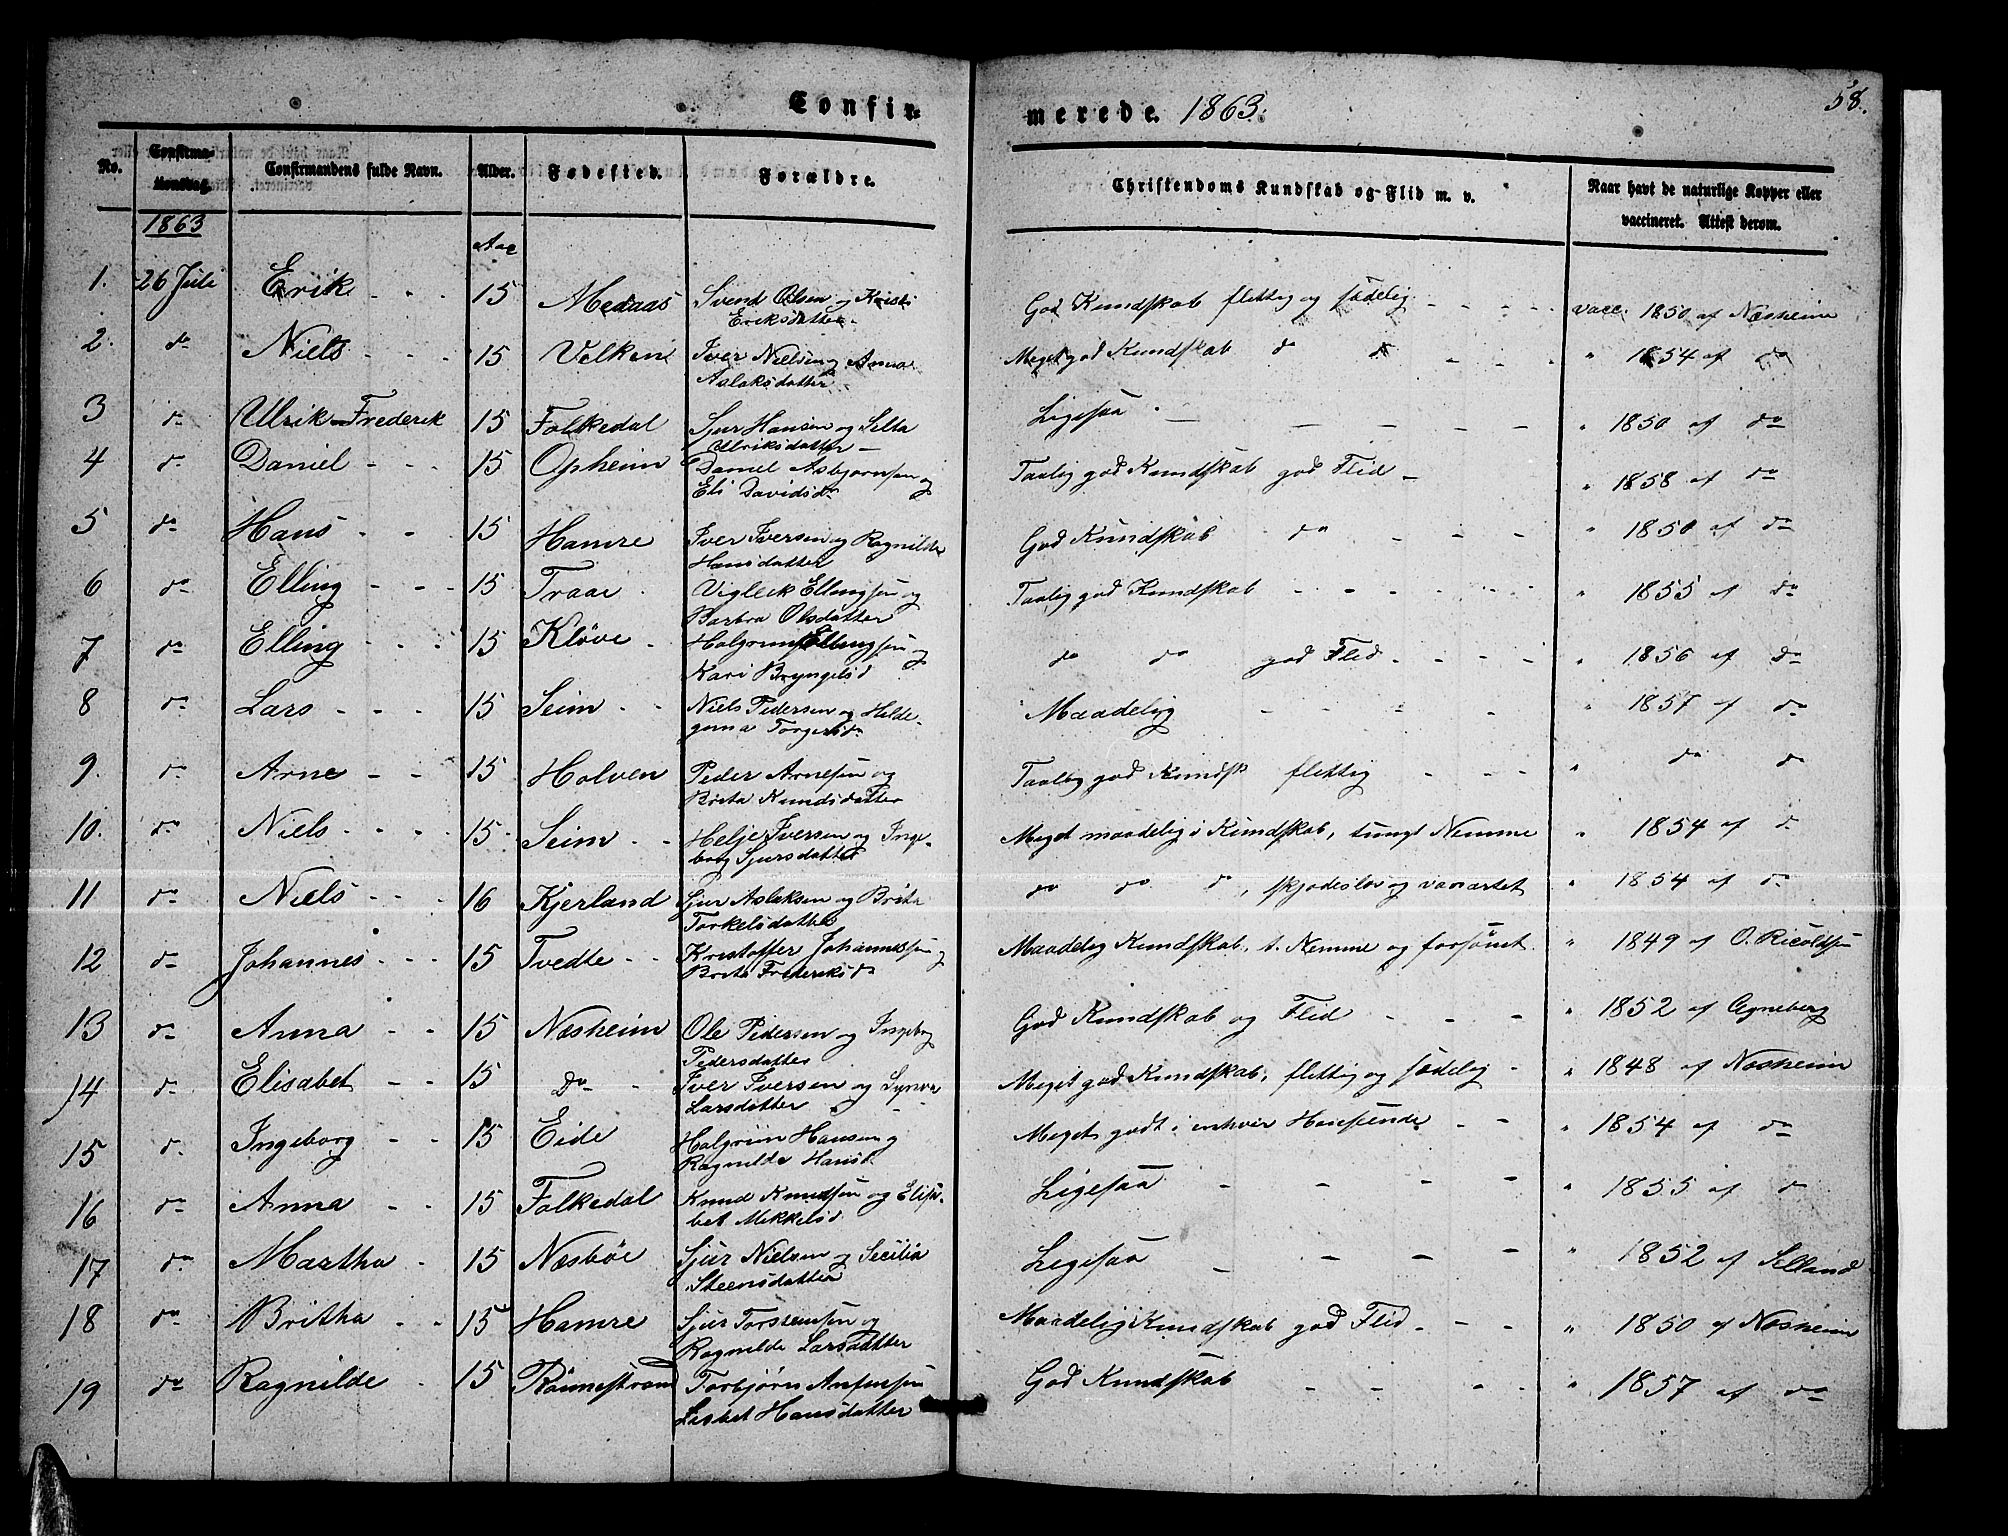 Confir-
merede. 1863.
58.
No.
Confirma-
tionsdag.
Confirmandens fulde Navn.
Alder.
Fødested.
Forældre.
Christendoms Kundskab og Flid m. v.
Naar havt de naturlige Kopper eller
vaccineret. Attest derom.
1863
Aar
1. 26 Juli Erik - - 15 Medaas Svend Olsen og Kristi God Kundskab flittig og sædelig - - - - vacc. 1850 af Næsheim
Eriksdatter
2. do Niels - - - 15 Velken Iver Nielsen og Anna Meget god Kundskab do do - - - " 1854 af do
Aslaksdatter
3 do Ulrik Frederik 15 Folkedal Sjur Hansen og Ligesaa - - - - - " 1850 af do
Ulriksdatter
4 do Daniel - - - 15 Opheim Daniel Asbjørnsen og Taalig god Kundskab god Flid - " 1858 af do
Eli Davidsdr
5 do Hans - - 15 Hamre Iver Iversen og Ragnilde God Kundskab do - - - " 1850 af do
Hansdatter
6 do Elling - - - 15 Traai Vigleik Ellingsen og Taalig god Kundskab - - - - - " 1855 af do
Barbra Olsdatter
7 do Elling - - - 15 Kløve Halgrim Ellingsen og do do god Flid - - - - " 1856 af do
Kari Bryngelsd
8 do Lars - - - 15 Seim Niels Pedersen og Helde- Maadelig - - - - " 1857 af do
guna Torgersdr
9. do Arne - - 15 Holven Peder Arnesen og Taalig god Kundsk flittig - - - " do do
Brita Knudsdatter
10. do Niels - - - - 15 Seim Helje Iversen og Inge- Meget maadelig i Kundskab, tungt Nemme " 1854 af do
borg Sjursdatter
11 do Niels - - - 16 Kjerland Sjur Aslaksen og Brita do do do, skjødesløs og vanartet " 1854 af do
Torkelsdatter
12 do Johannes - - - 15 Tvedte Kristoffer Johannessen og Maadelig Kundskab, t. Nemme og forsømt. " 1849 af O. Ricoldsen
Brita Frederiksdr
13 do Anna - - 15 Næsheim Ole Pedersen og Ingeborg God Kundskab og Flid - - - " 1852 af Egneberg
Pedersdatter
14 do Elisabet - - 15 Do Iver Iversen og Synva Meget god Kundskab, flittig og sædelig - " 1848 af Næsheim
Larsdatter
15 do Ingeborg - - 15 Eide Halgrim Hansen og Meget godt i enhver Henseende - - " 1854 af do
Ragnilde Hansd.
16 do Anna - - 15 Folkedal Knud Knudsen og Elisa- Ligesaa - - - - " 1855 af do
bet Mikkelsd
17 do Martha - 15 Næsbøe Sjur Nielsen og Secilia Ligesaa - - - - " 1852 af Selland
Steensdatter
18 do Britha - - 15 Hamre Sjur Torstensen og Maadelig Kundskab god Flid - - - " 1850 af Næsheim
Ragnilde Larsdatter
19 do Ragnilde - 15 Rønnestrand Torbjørn God Kundskab - - - - " 1857 af do
Lisbet Hansdatter